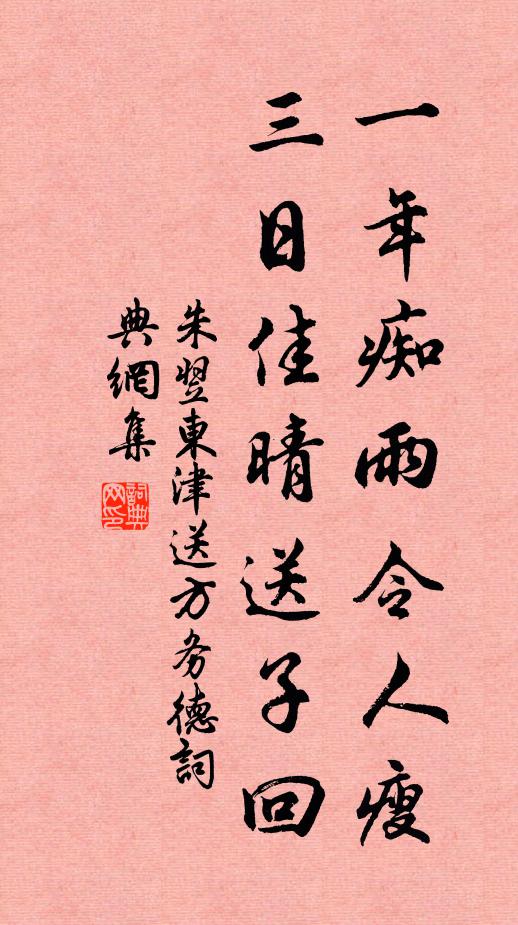 一年痴雨令人瘦
三日佳晴送子回
朱翌東津送方务德詞
典網集
詞典
网印